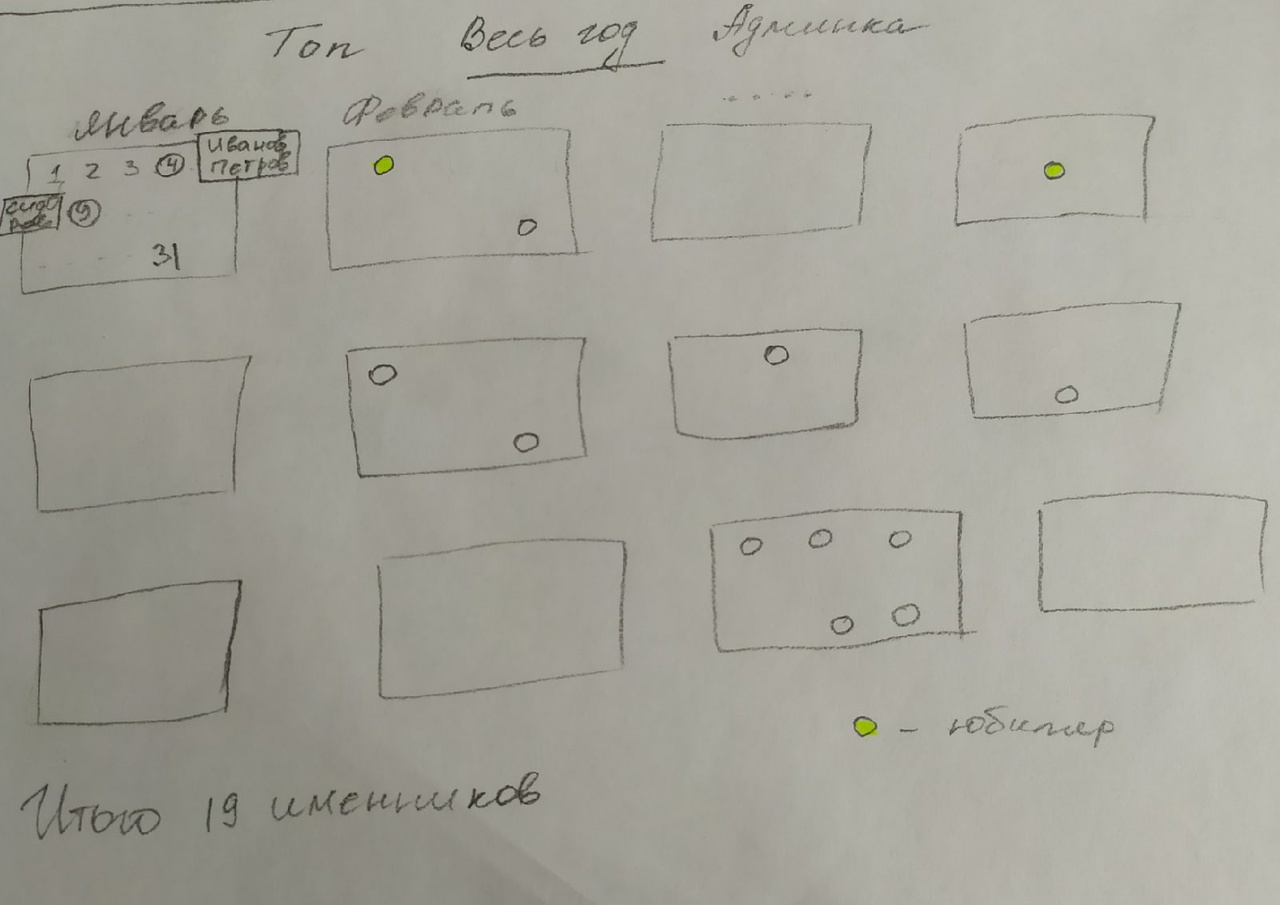 Топ Весь год Админка
Январь Февраль .....
1 2 3 4 Иванов
Петров
Сидо
ров 9
31
- юбиляр
Итого 19 именников